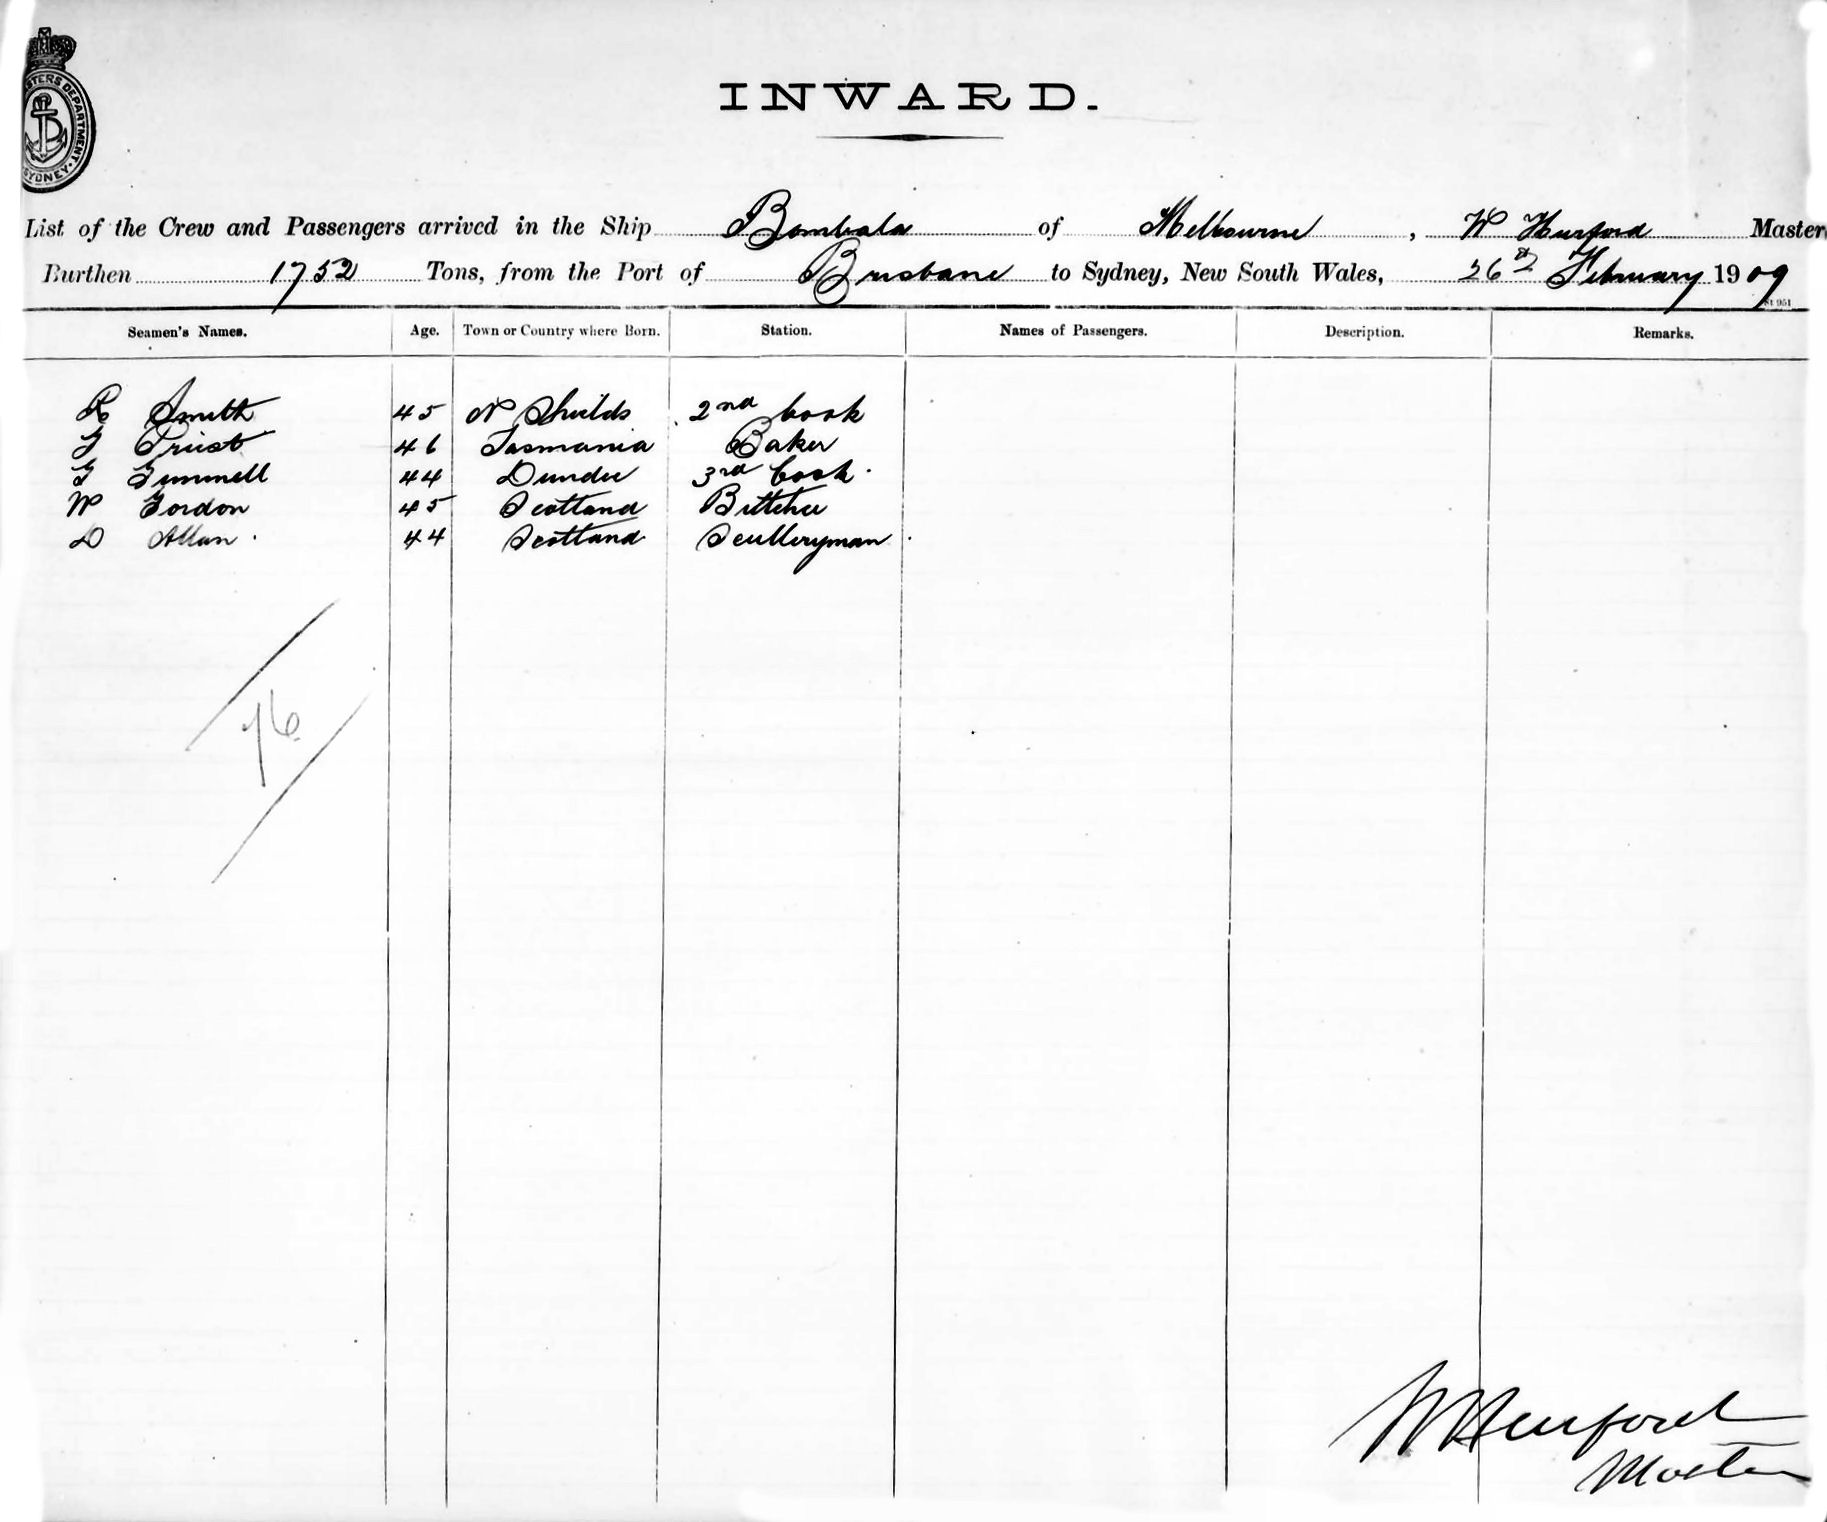 STERS DEPARTMENT.
SYDNEY.
INWARD.
List of the Crew and Passengers arrived in the Ship Bombala of Melbourne, W Hurford Master,
Burthen 1752 Tons, from the Port of Brisbane to Sydney, New South Wales, 26th February 1909
St 951
Seamen's Names. Age. Town or Country where Born. Station. Names of Passengers. Description. Remarks.
R Smith 45 N Shields 2nd Cook
Priest 46 Tasmania Baker
Gemmell 44 Dundee 3rd Cook.
W Gordon 45 Scotland Butcher
D Allan. 44 Scotland Sculleryman.
76
W Hurford
Master